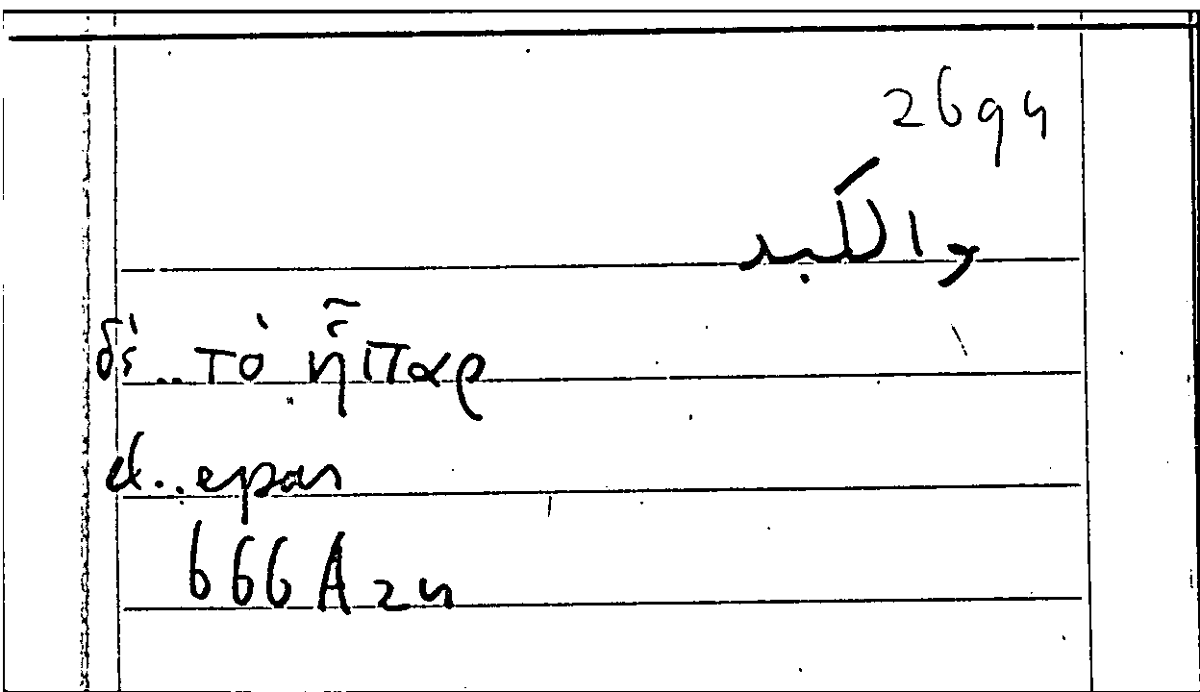 2694
والكبد
δέ..τὸ ἧπαρ
et..epar
666A24